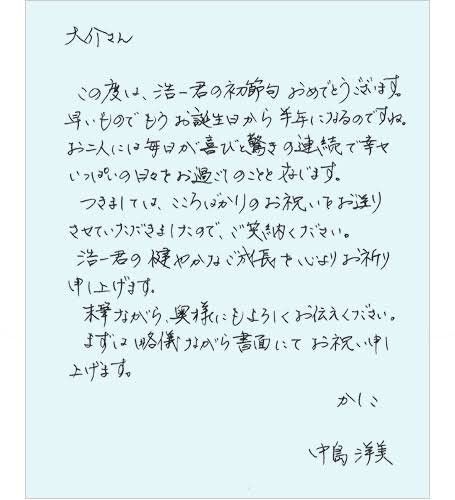 大介さん
この度は、浩一君の初節句おめでとうございます。
早いものでもうお誕生日から半年になるのですね。
お二人には毎日が喜びと驚きの連続で幸せ
いっぱいの日々をお過ごしのことと存じます。
つきましては、こころばかりのお祝いをお送り
させていただきましたので、ご笑納ください。
浩一君の健やかなご成長を心よりお祈り
申し上げます。
末筆ながら、奥様にもよろしくお伝えください。
まずは略儀ながら書面にてお祝い申し
上げます。
かしこ
中島洋美